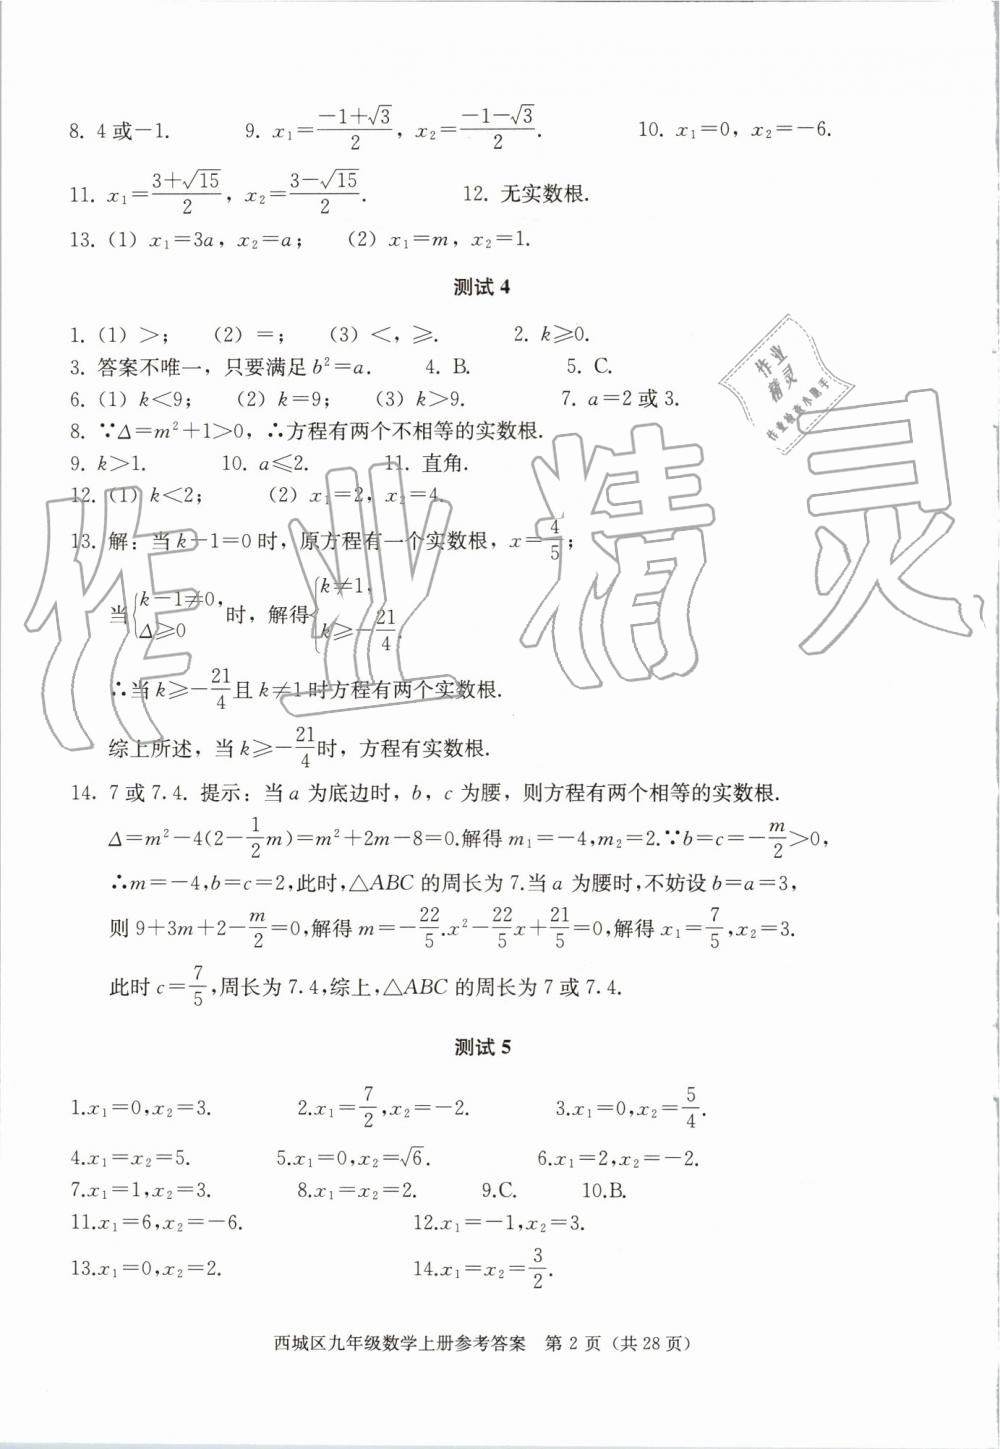 8. 4或−1.  9. x₁=(−1+√3)/2，x₂=(−1−√3)/2.  10. x₁=0，x₂=−6.
11. x₁=(3+√15)/2，x₂=(3−√15)/2.  12. 无实数根.
13.（1）x₁=3a，x₂=a；（2）x₁=m，x₂=1.
测试4
1.（1）>；（2）=；（3）<，≥.  2. k≥0.
3. 答案不唯一，只要满足b²=a.  4. B.  5. C.
6.（1）k<9；（2）k=9；（3）k>9.  7. a=2或3.
8. ∵Δ=m²+1>0，∴方程有两个不相等的实数根.
9. k>1.  10. a≤2.  11. 直角.
12.（1）k<2；（2）x₁=2，x₂=4.
13. 解：当k−1=0时，原方程有一个实数根，x=4/5；
当{k−1≠0，Δ≥0 时，解得{k≠1，k≥−21/4.
∴当k≥−21/4且k≠1时方程有两个实数根.
综上所述，当k≥−21/4时，方程有实数根.
14. 7或7.4. 提示：当a为底边时，b，c为腰，则方程有两个相等的实数根.
Δ=m²−4(2−1/2m)=m²+2m−8=0.解得m₁=−4,m₂=2.∵b=c=−m/2>0,
∴m=−4,b=c=2,此时,△ABC的周长为7.当a为腰时,不妨设b=a=3,
则9+3m+2−m/2=0,解得m=−22/5.x²−22/5x+21/5=0,解得x₁=7/5,x₂=3.
此时c=7/5,周长为7.4,综上,△ABC的周长为7或7.4.
测试5
1.x₁=0,x₂=3.  2.x₁=7/2,x₂=−2.  3.x₁=0,x₂=5/4.
4.x₁=x₂=5.  5.x₁=0,x₂=√6.  6.x₁=2,x₂=−2.
7.x₁=1,x₂=3.  8.x₁=x₂=2.  9.C.  10.B.
11.x₁=6,x₂=−6.  12.x₁=−1,x₂=3.
13.x₁=0,x₂=2.  14.x₁=x₂=3/2.
西城区九年级数学上册参考答案 第2页（共28页）
作业精灵
作业
精灵
作业检查小助手